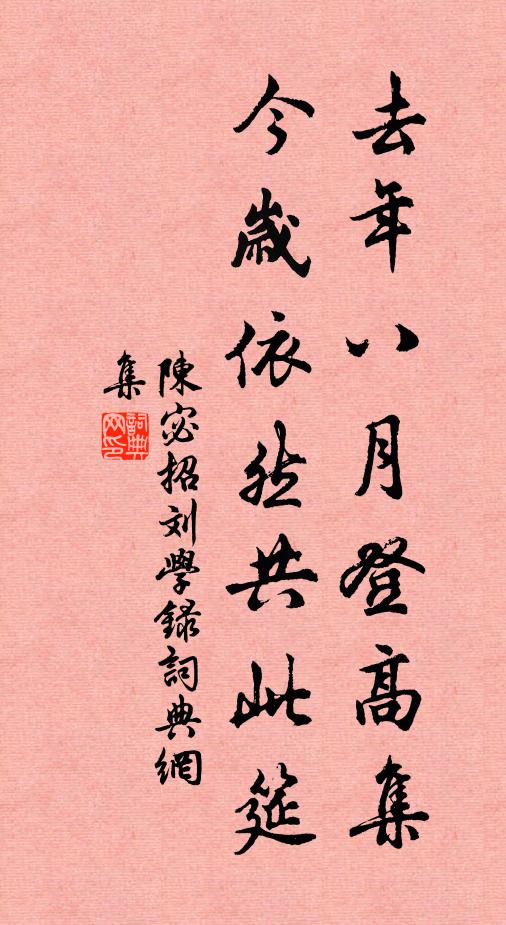 去年八月登高集
今歲依然共此筵
陳宓招刘學録詞典網
集
詞典网印